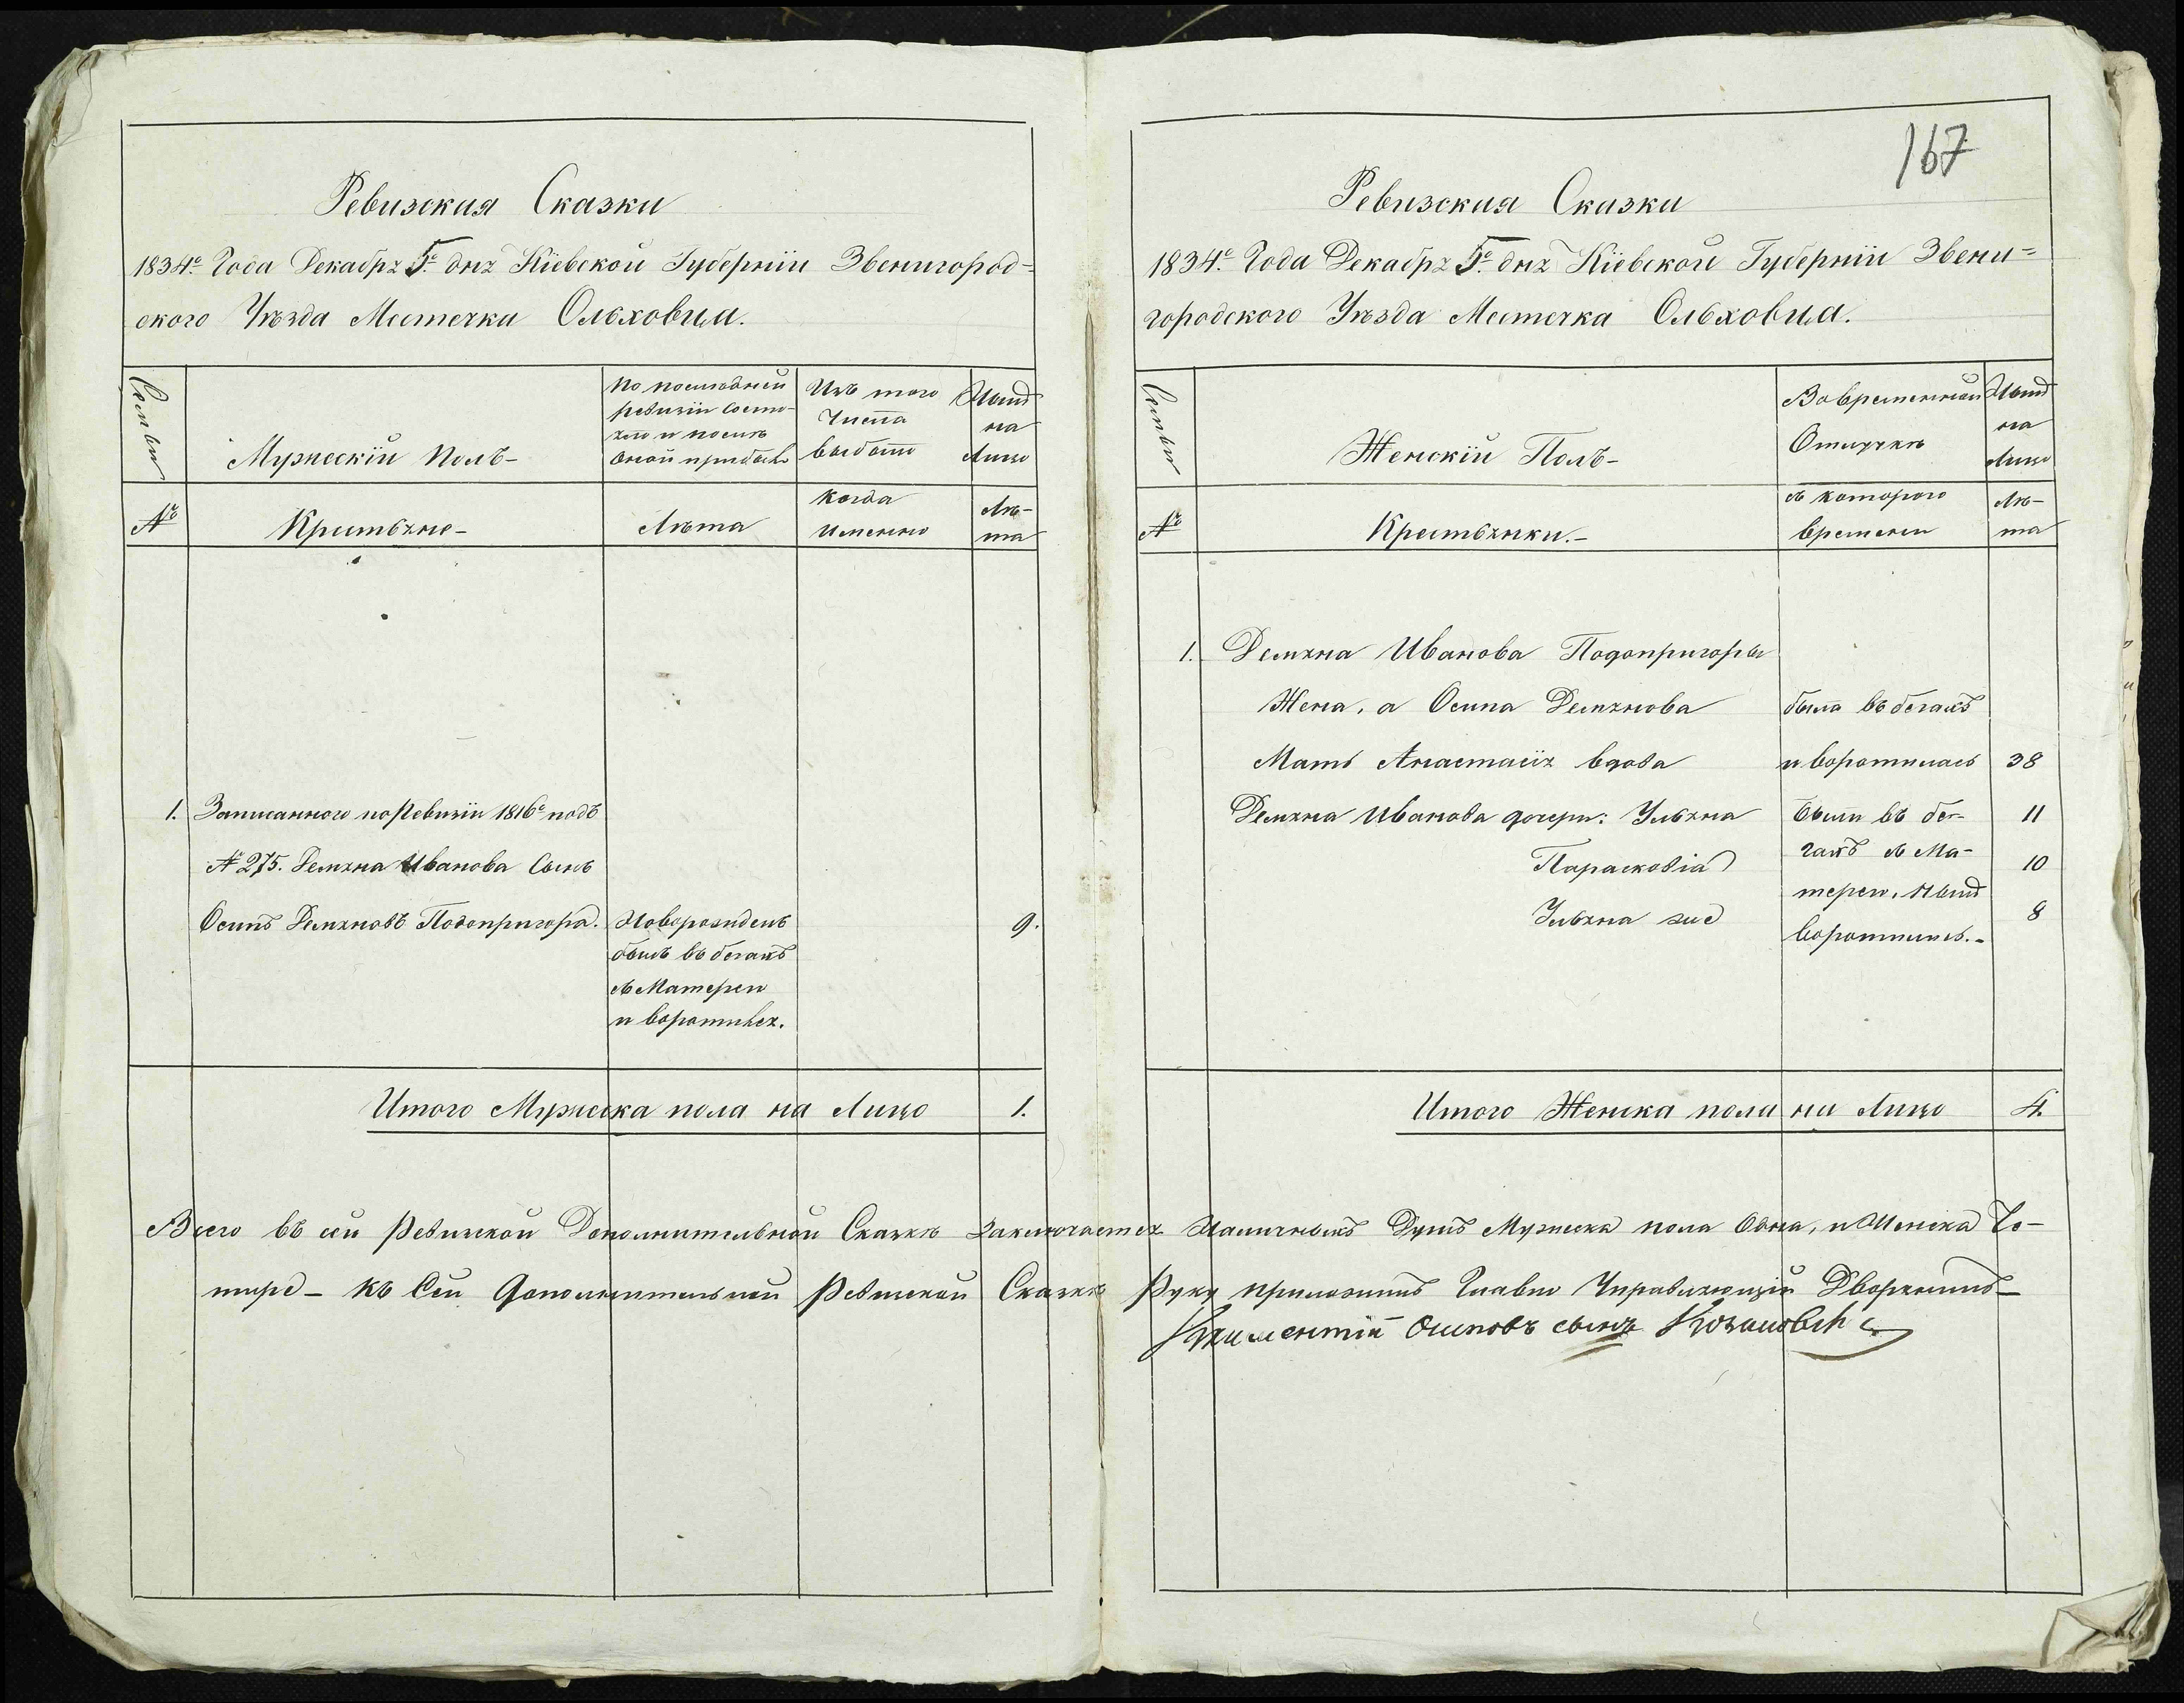 Ревизская Сказки
1834е. Года Декабря 5е. дня Кіевской Губерніи Звенигород-
ского Уѣзда Местечка Ольховца.
Семьи
Мужескій Полъ-
По последней
ревизіи состо-
яло и послѣ
оной прибыло
Изъ того
Числа
выбыло
Нынѣ
на
Лицо
№
Крестьяне-
Лѣта
Когда
именно
Лѣ-
та
1. Записанного по Ревизіи 1816е подъ
№ 275. Демяна Иванова Сынъ
Осипъ Демяновъ Подопригора.
Новорожденъ
былъ въ бегахъ
съ Матерею
и воротился.
9.
Итого Мужеска пола на Лицо 1.
167
Ревизская Сказки
1834е. Года Декабря 5е. дня Кіевской Губерніи Звени=
городского Уѣзда Местечка Ольховца.
Семьи
Женскій Полъ-
Вовременной
Отлучкѣ
Нынѣ
на
Лицо
№
Крестьянки.-
съ которого
времени
Лѣ-
та
1. Демяна Иванова Подопригоры
Жена, а Осипа Демянова
была въ бегахъ
Мать Анастасія вдова
и воротилась 38
Демяна Иванова дочери: Ульяна
Были въ бе- 11
Парасковіа
гахъ съ Ма- 10
терею, Нынѣ
Ульяна же
8
воротились.-
Итого Женска пола на Лицо 4.
Всего въ сей Ревизской Дополнительной Сказкѣ Заключается Наличныхъ Душъ Мужеска пола Одна, и Женска Че-
тыре- Къ Сей Дополнительной Ревизской Сказкѣ Руку приложилъ Главно Управляющій Дворянинъ-
Климентій Осиповъ сынъ